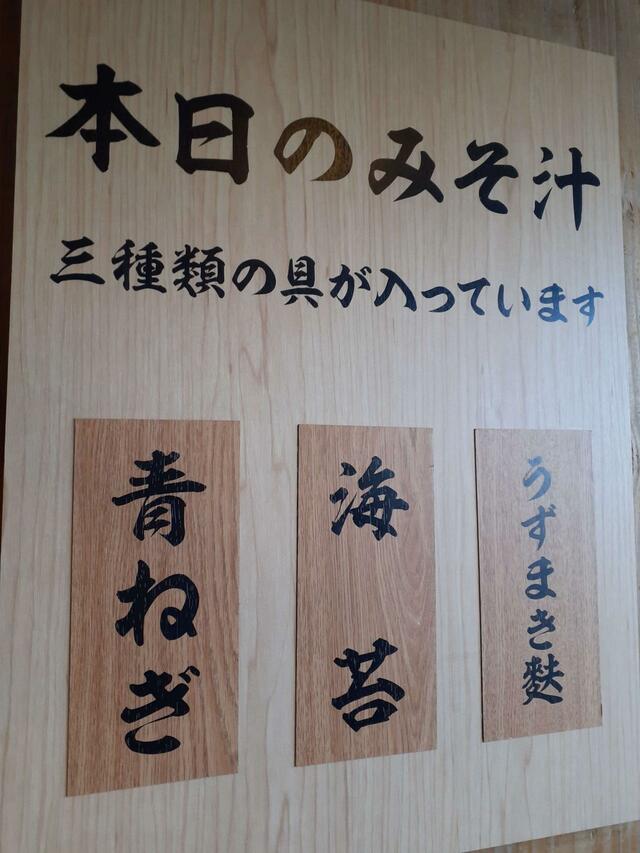 本日のみそ汁
三種類の具が入っています
青ねぎ
海苔
うずまき麩